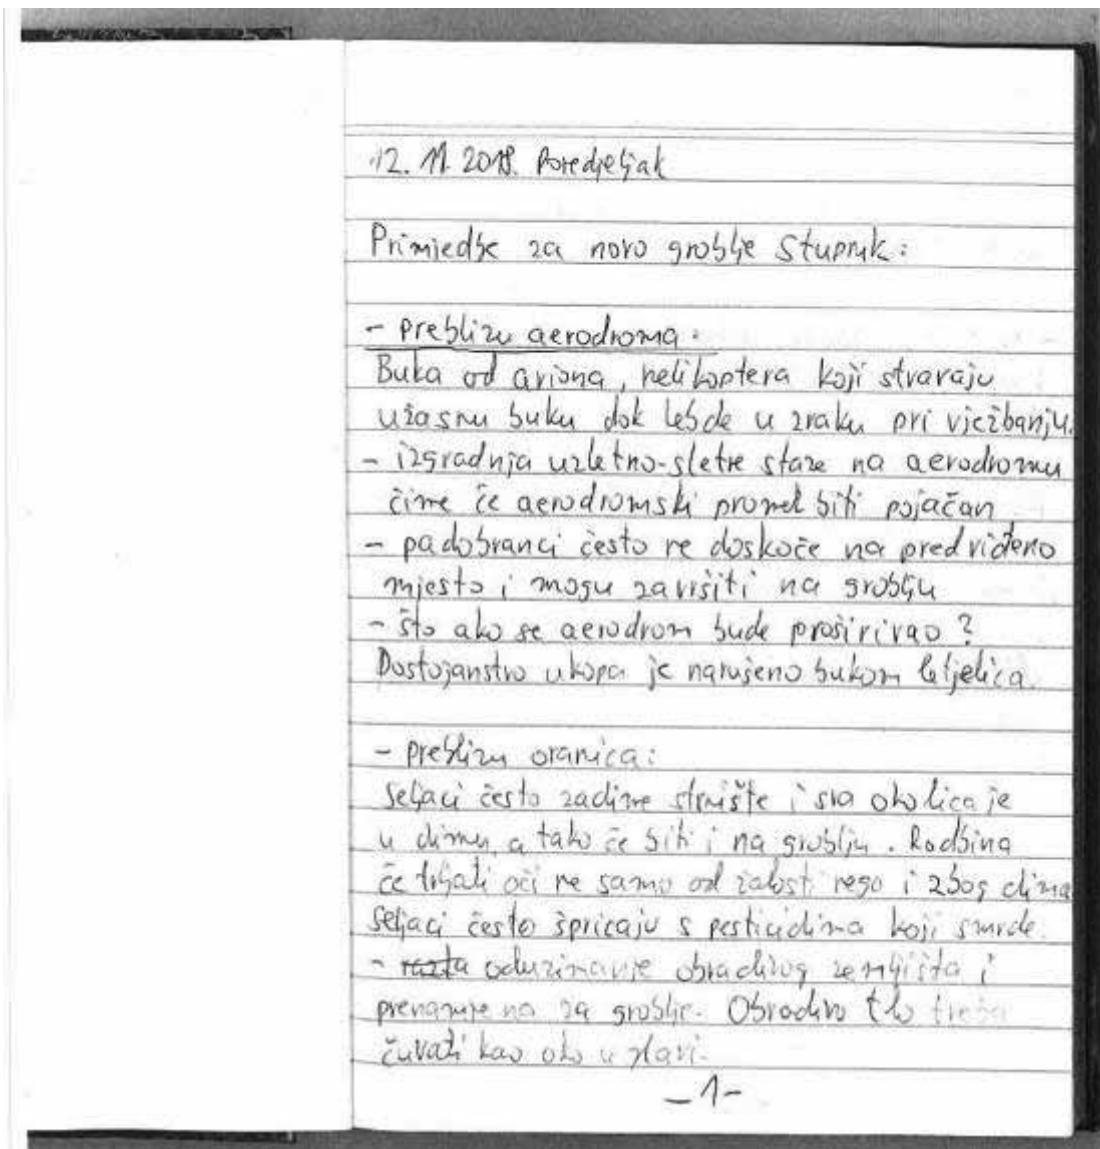 12. 11. 2018. Ponedjeljak
Primjedbe za novo groblje Stupnik:
- preblizu aerodroma:
Buka od aviona, helikoptera koji stvaraju
užasnu buku dok lebde u zraku pri vježbanju.
- izgradnja uzletno-sletne staze na aerodromu
čime će aerodromski promet biti pojačan
- padobranci često ne doskoče na predviđeno
mjesto i mogu završiti na groblju
- što ako se aerodrom bude proširivao?
Dostojanstvo ukopa je narušeno bukom letjelica.
- preblizu oranica:
Seljaci često zadime strnište i sva okolica je
u dimu, a tako će biti i na groblju. Rodbina
će trljati oči ne samo od žalosti nego i zbog dima
Seljaci često špricaju s pesticidima koji smrde.
- oduzimanje obradivog zemljišta i
za groblje. Obradivo tlo treba
čuvati kao oko u glavi.
-1-